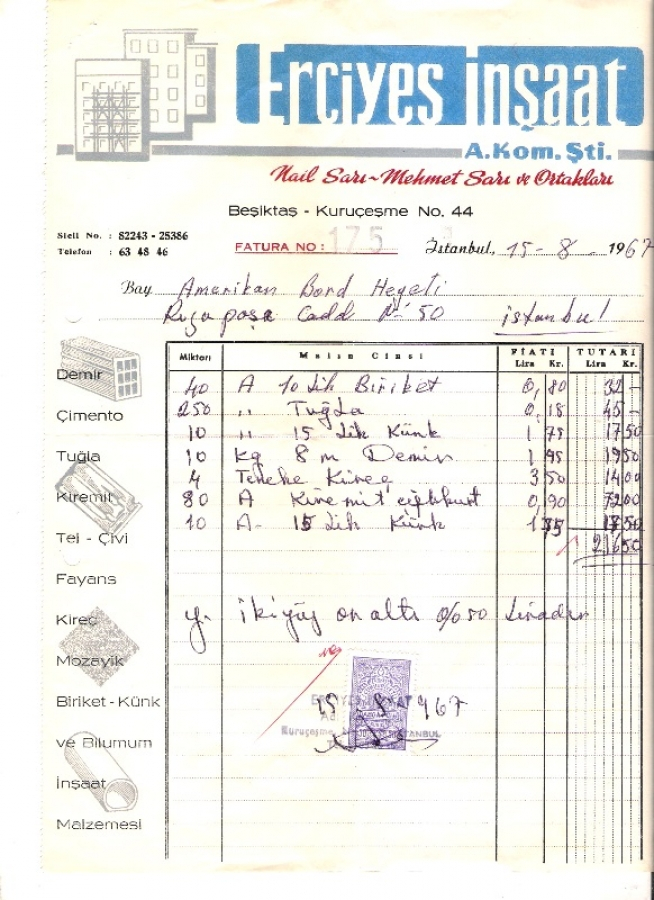 Erciyes İnşaat
A.Kom.Şti.
Nail Sarı - Mehmet Sarı ve Ortakları
Beşiktaş - Kuruçeşme No. 44
Sicil No. : 82243 - 25386
Telefon : 63 48 46
FATURA NO: 175
İstanbul, 15-8-1967
Bay Amerikan Bord Heyeti
Rıza paşa Cadd No 50 istanbul
Miktarı Malın Cinsi FİATI TUTARI
Lira Kr. Lira Kr.
40 A 10 Lik Biriket 0,80 32 -
250 " Tuğla 0,18 45 -
10 " 15 Lik Künk 1 75 17 50
10 Kg 8 m Demir 1 95 19 50
4 Teneke Kireç 3 50 14 00
80 A Kiremit 0,90 72 00
10 A- 15 Lik Künk 1 75 17 50
216 50
y. ikiyüz on altı 0/0 50 Liradır
Demir
Çimento
Tuğla
Kiremit
Tel - Çivi
Fayans
Kireç
Mozayik
Biriket - Künk
ve Bilumum
İnşaat
Malzemesi
15-8-967
Kuruçeşme İSTANBUL